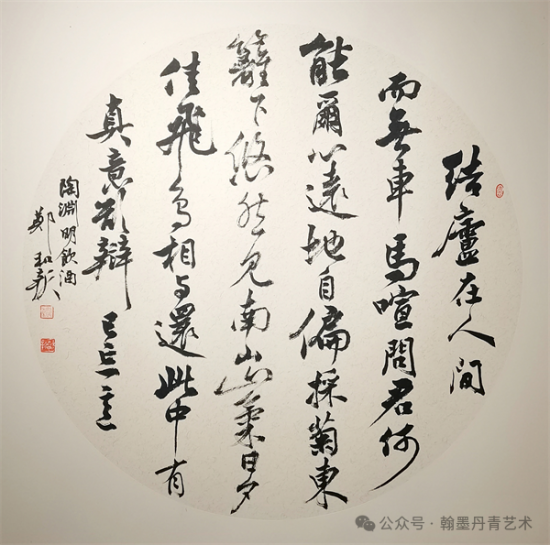 結廬在人間
而無車馬喧問君何
能爾心遠地自偏採菊東
籬下悠然見南山氣日夕
佳飛鳥相与還此中有
真意欲辯已忘言
陶淵明飲酒
鄭
公众号·翰墨丹青艺术